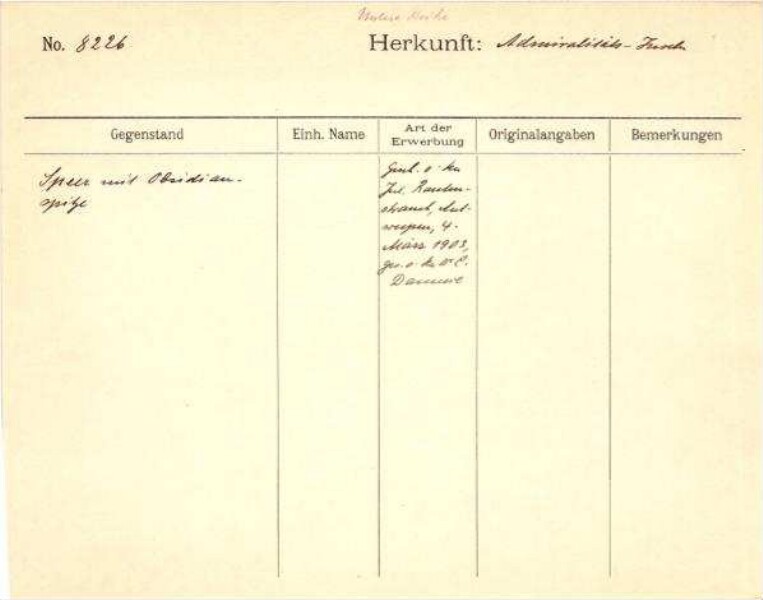 No. 8226 Herkunft: Admiralitäts-Inseln
Gegenstand Einh. Name Art der Erwerbung Originalangaben Bemerkungen
Speer mit Obsidian-
spitze
Gesch.
Jul. Rauten-
strauch, Ant-
werpen, 4.
März 1903,